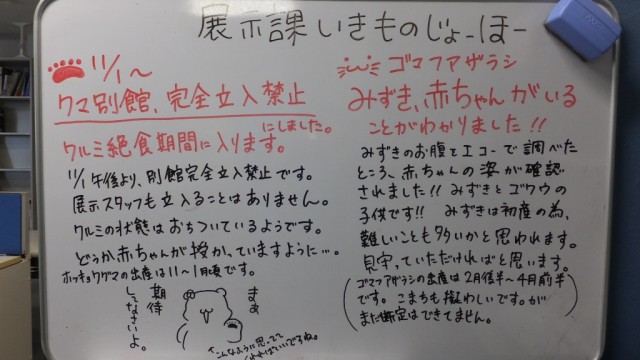 展示課いきものじょーほー
11/1〜
クマ別館、完全立入禁止
にしました。
クルミ絶食期間に入ります。
11/1 午後より、別館完全立入禁止です。
展示スタッフも立入ることはありません。
クルミの状態はおちついているようです。
どうか赤ちゃんが授かっていますように…。
ホッキョクグマの出産は11〜1月頃です。
まぁ
期待
してなさいよ。
こんなふうに思ってて
くれればいいですね。
ゴマフアザラシ
みずき、赤ちゃんがいる
ことがわかりました!!
みずきのお腹をエコーで調べた
ところ、赤ちゃんの姿が確認
されました!! みずきとゴウウの
子供です!! みずきは初産の為、
難しいことも多いかと思われます。
見守っていただければと思います。
ゴマフアザラシの出産は2月後半〜4月前半
です。こまちも擬わしいです。が
まだ断定はできてません。